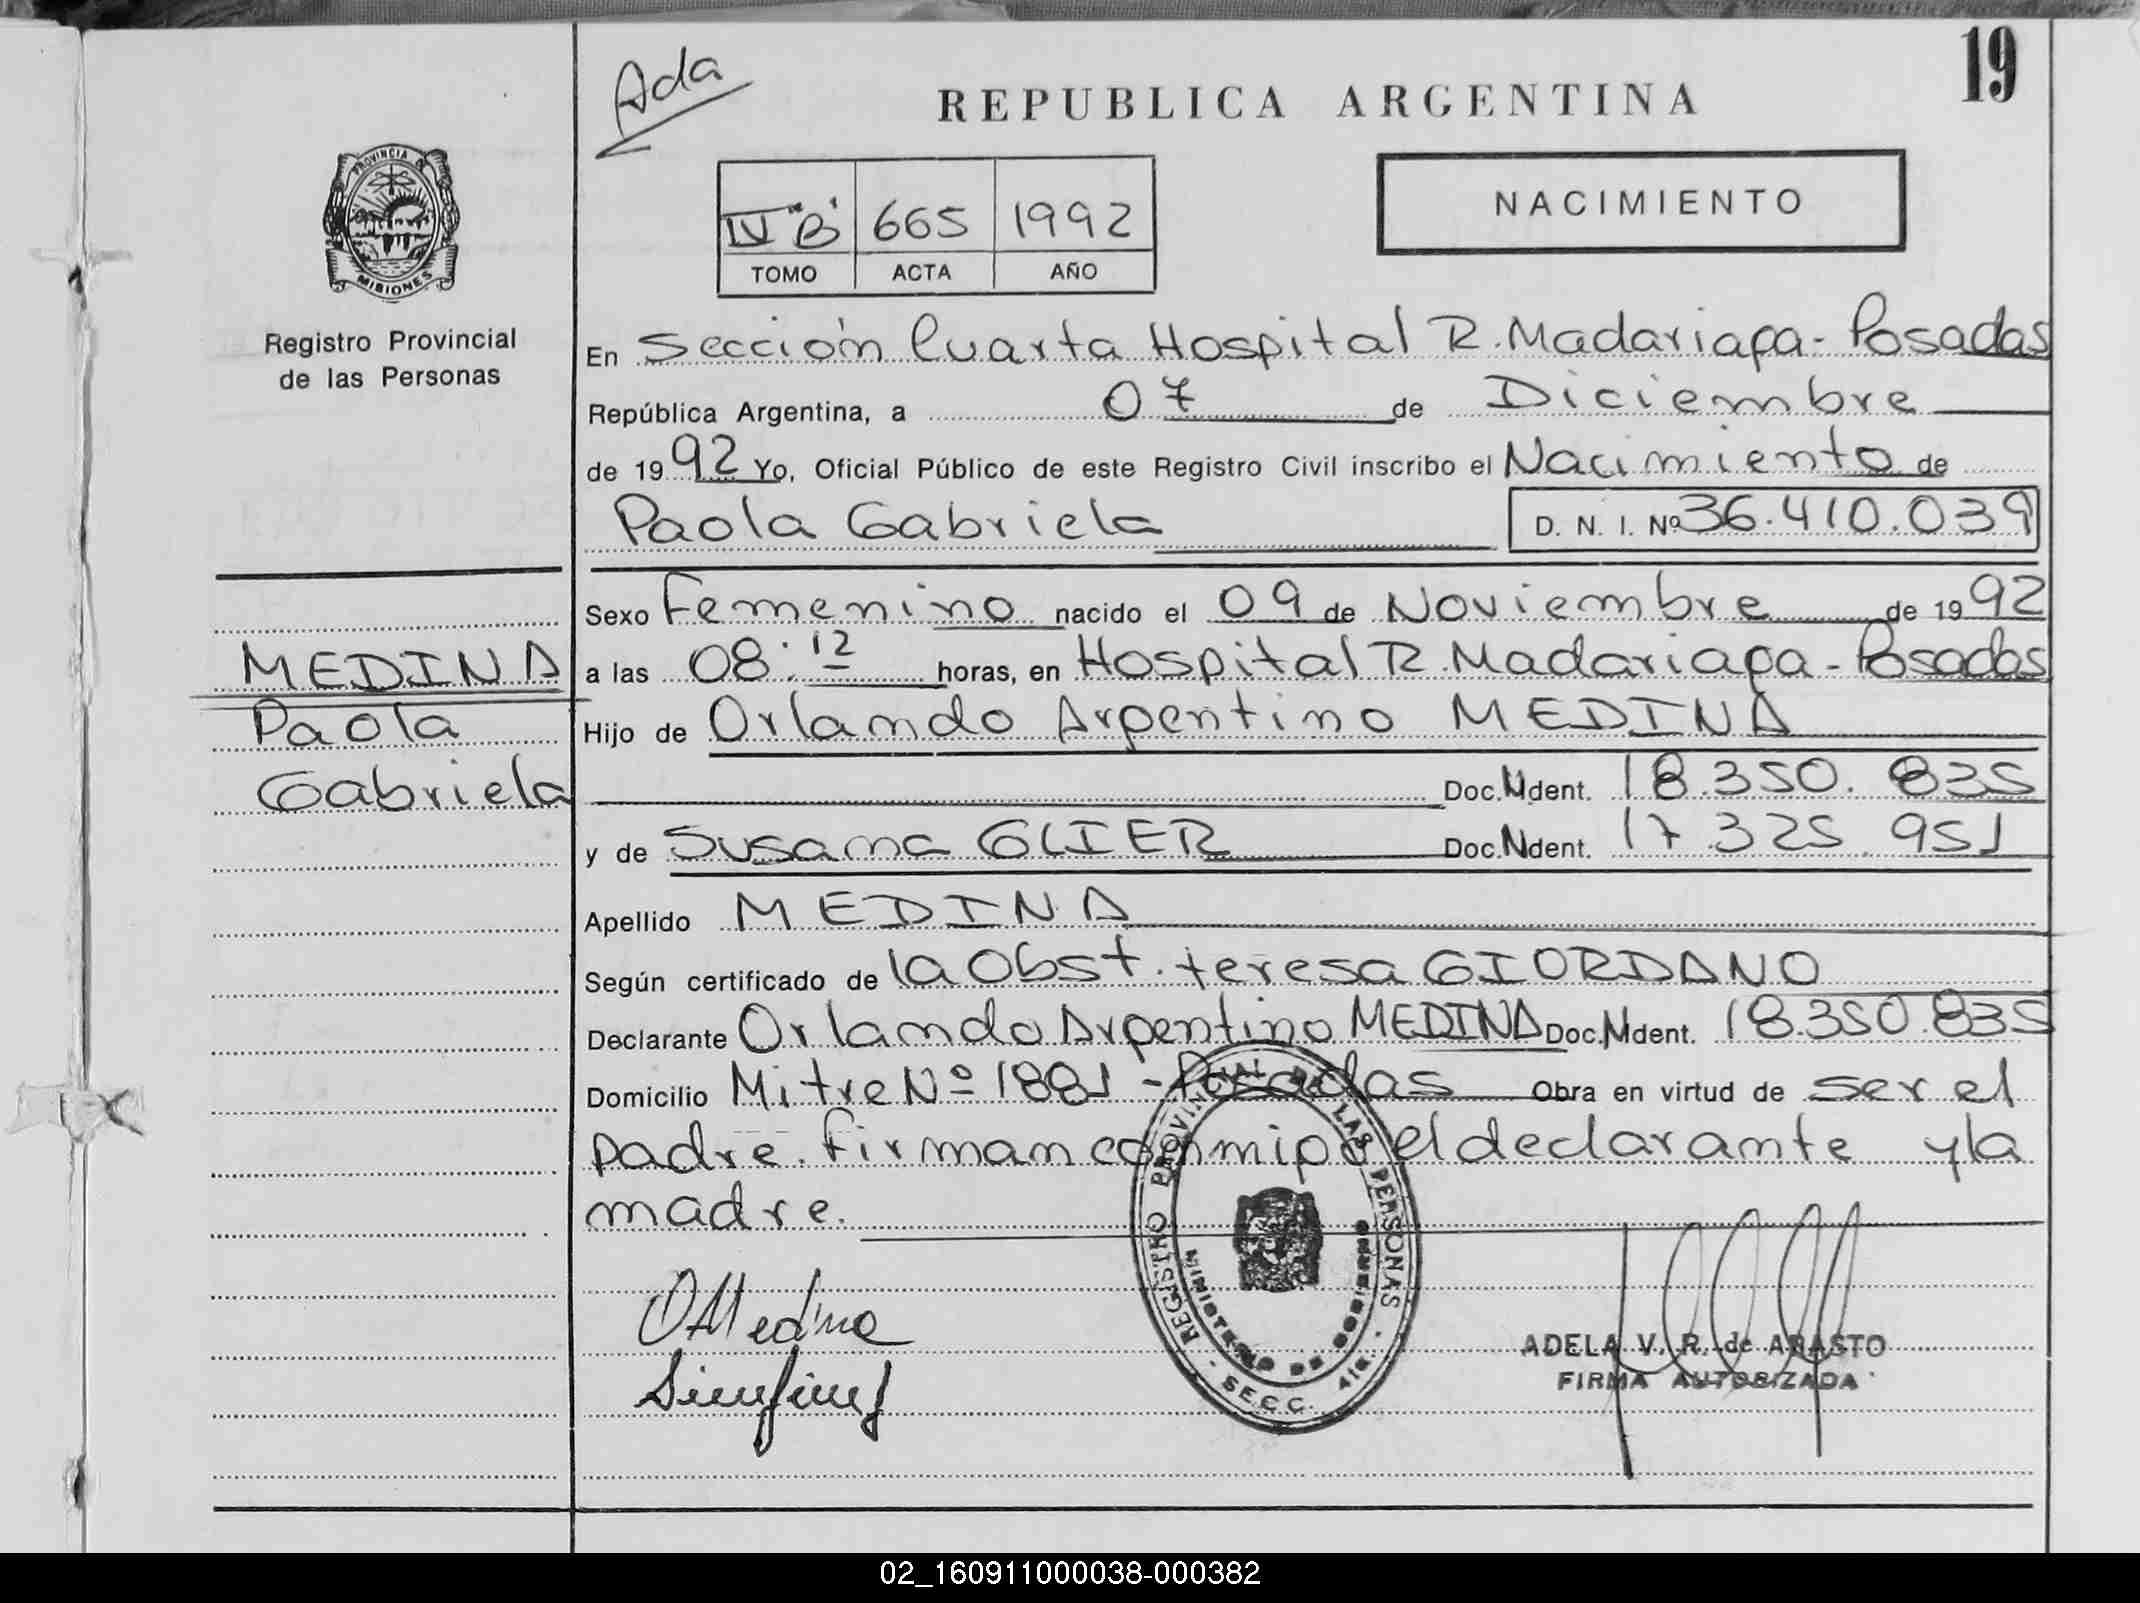 19
Ada
REPUBLICA ARGENTINA
NACIMIENTO
IV "B" 665 1992
TOMO ACTA AÑO
PROVINCIA DE
MISIONES
Registro Provincial
de las Personas
En Sección Cuarta Hospital R. Madariaga - Posadas
República Argentina, a 07 de Diciembre
de 1992 Yo, Oficial Público de este Registro Civil inscribo el Nacimiento de
Paola Gabriela D. N. I. Nº 36.410.039
Sexo Femenino nacido el 09 de Noviembre de 1992
a las 08:12 horas, en Hospital R. Madariaga - Posadas
Hijo de Orlando Argentino MEDINA
Doc. Ident. 18.350.835
y de Susana GLIER Doc. Ident. 17.325.951
Apellido MEDINA
Según certificado de la Obst. teresa GIORDANO
Declarante Orlando Argentino MEDINA Doc. Ident. 18.350.835
Domicilio Mitre Nº 1881 - Posadas Obra en virtud de ser el
padre. firman conmigo el declarante y la
madre.
MEDINA
Paola
Gabriela
OMedina
REGISTRO PROVINCIAL DE LAS PERSONAS
MINISTERIO DE GOBIERNO
SECC. 4ta.
ADELA V. R. de ABASTO
FIRMA AUTORIZADA
02_160911000038-000382